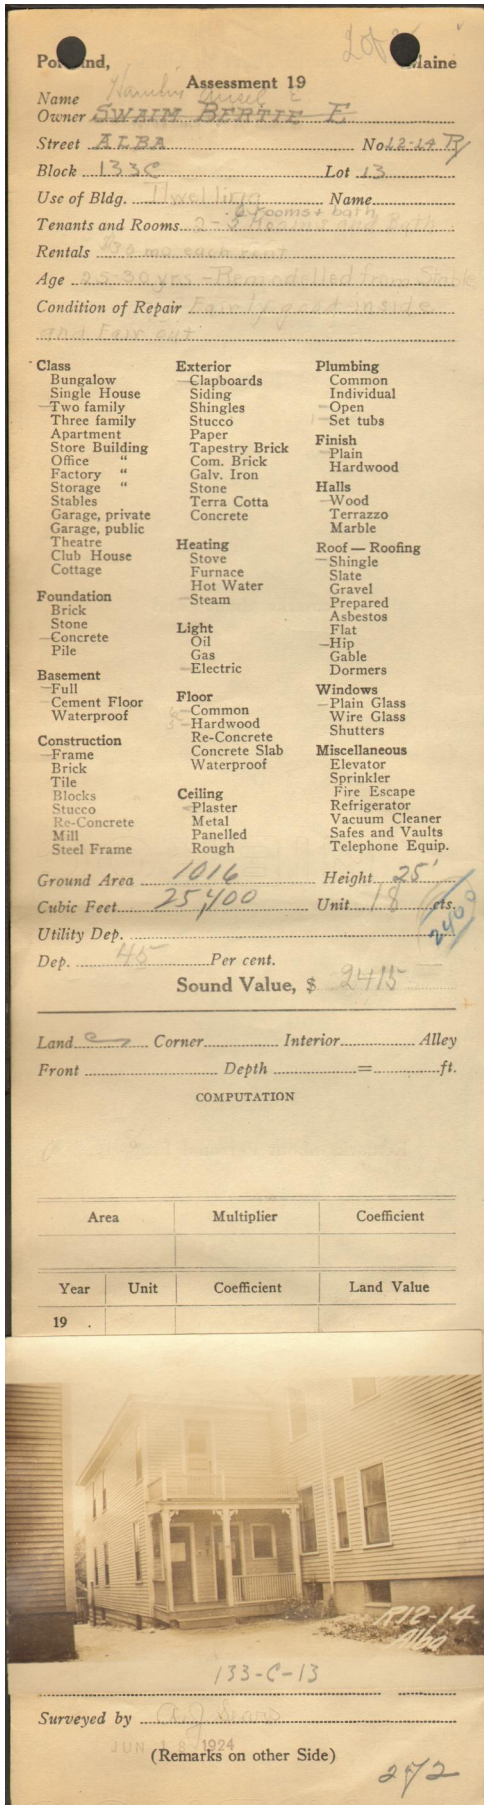 2 of
Portland, Maine
Assessment 19
Name Hamlin Ansel E
Owner SWAIM BERTIE E
Street ALBA No. 12-14 R
Block 133C Lot 13
Use of Bldg. Dwelling Name
6 rooms + bath
Tenants and Rooms 2-5 Rooms and Bath
Rentals $30 mo. each rent
Age 25-30 yrs - Remodelled from Stable
Condition of Repair Fairly good inside
and Fair out
Class
Bungalow
Single House
Two family
Three family
Apartment
Store Building
Office "
Factory "
Storage "
Stables
Garage, private
Garage, public
Theatre
Club House
Cottage
Foundation
Brick
Stone
Concrete
Pile
Basement
Full
Cement Floor
Waterproof
Construction
Frame
Brick
Tile
Blocks
Stucco
Re-Concrete
Mill
Steel Frame
Exterior
Clapboards
Siding
Shingles
Stucco
Paper
Tapestry Brick
Com. Brick
Galv. Iron
Stone
Terra Cotta
Concrete
Heating
Stove
Furnace
Hot Water
Steam
Light
Oil
Gas
Electric
Floor
Common
Hardwood
Re-Concrete
Concrete Slab
Waterproof
Ceiling
Plaster
Metal
Panelled
Rough
Plumbing
Common
Individual
Open
Set tubs
Finish
Plain
Hardwood
Halls
Wood
Terrazzo
Marble
Roof — Roofing
Shingle
Slate
Gravel
Prepared
Asbestos
Flat
Hip
Gable
Dormers
Windows
Plain Glass
Wire Glass
Shutters
Miscellaneous
Elevator
Sprinkler
Fire Escape
Refrigerator
Vacuum Cleaner
Safes and Vaults
Telephone Equip.
Ground Area 1016 Height 25'
Cubic Feet 25,400 Unit 18 cts.
2400
Utility Dep.
Dep. 45 Per cent.
Sound Value, $ 2415
Land Corner Interior Alley
Front Depth = ft.
COMPUTATION
Area Multiplier Coefficient
Year Unit Coefficient Land Value
19 .
R12-14
Alba
133-C-13
Surveyed by
JUN 18 1924
(Remarks on other Side)
272